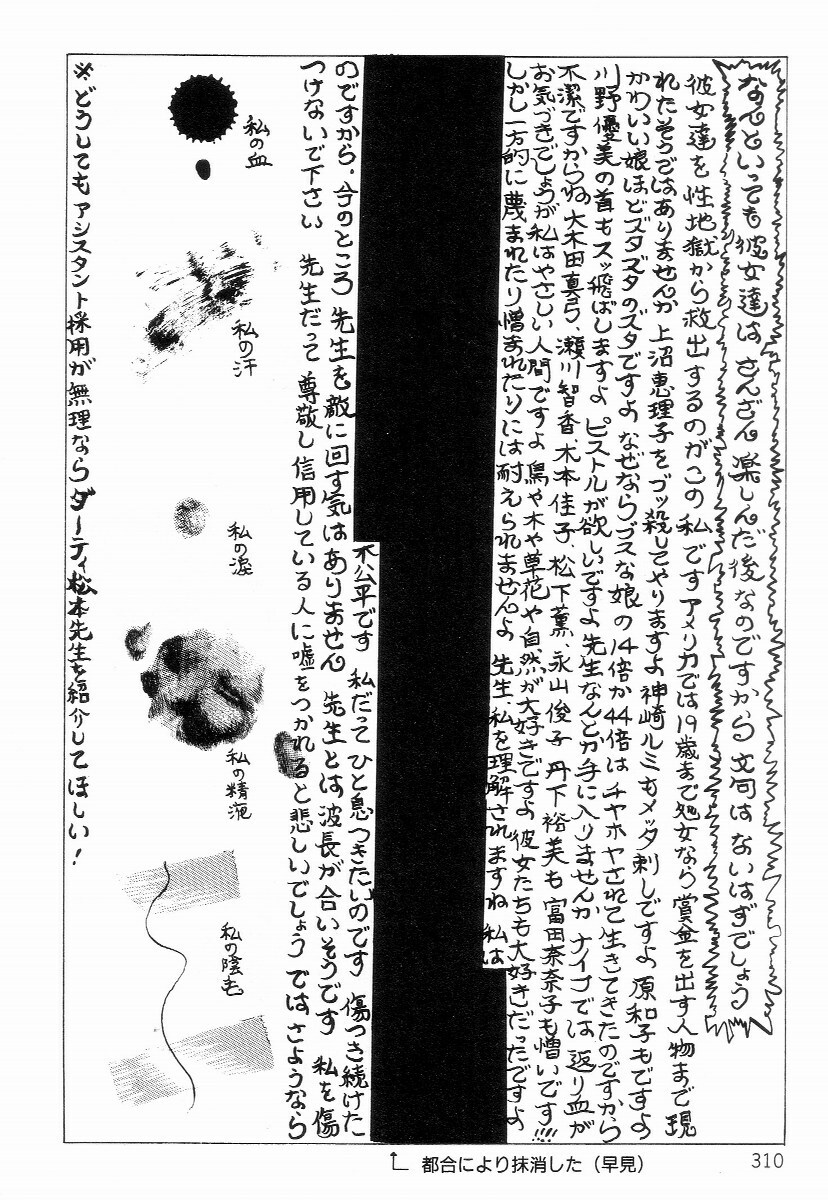 なんといっても彼女達は さんざん 楽しんだ後なのですから 文句はないはずでしょう
彼女達を性地獄から救出するのがこの私です アメリカでは19歳まで処女なら賞金を出す人物まで現
れたそうではありませんか 上沼恵理子をブッ殺してやりますよ 神崎ルミもメッタ刺しですよ 原和子もですよ
かわいい娘ほどズタズタのズタですよ なぜならブスな娘の14倍か44倍は チヤホヤされて生きてきたのですから
川野優美の首もスッ飛ばしますよ ピストルが欲しいですよ 先生なんとか手に入りませんか ナイフでは 返り血が
不潔ですからね 大木田真弓、瀬川智香、木本佳子、松下薫、永山俊子 丹下裕美も 富田奈奈子も憎いです!!!!
お気づきでしょうが 私はやさしい人間ですよ 鳥や木や草花や自然が大好きですよ 彼女たちも大好きだったですよ
しかし一方的に 蔑まれたり憎まれたりには耐えられませんよ 先生、私を理解されますね 私は
不公平です 私だって ひと息つきたいのです 傷つき続けた
のですから、今のところ 先生を敵に回す気はありません 先生とは波長が合いそうです 私を傷
つけないで下さい 先生だって 尊敬し信用している人に嘘をつかれると悲しいでしょう ではさようなら
私の血
私の汗
私の涙
私の精液
私の陰毛
※どうしてもアシスタント採用が無理ならダーティ松本先生を紹介してほしい!
都合により抹消した（早見）
310